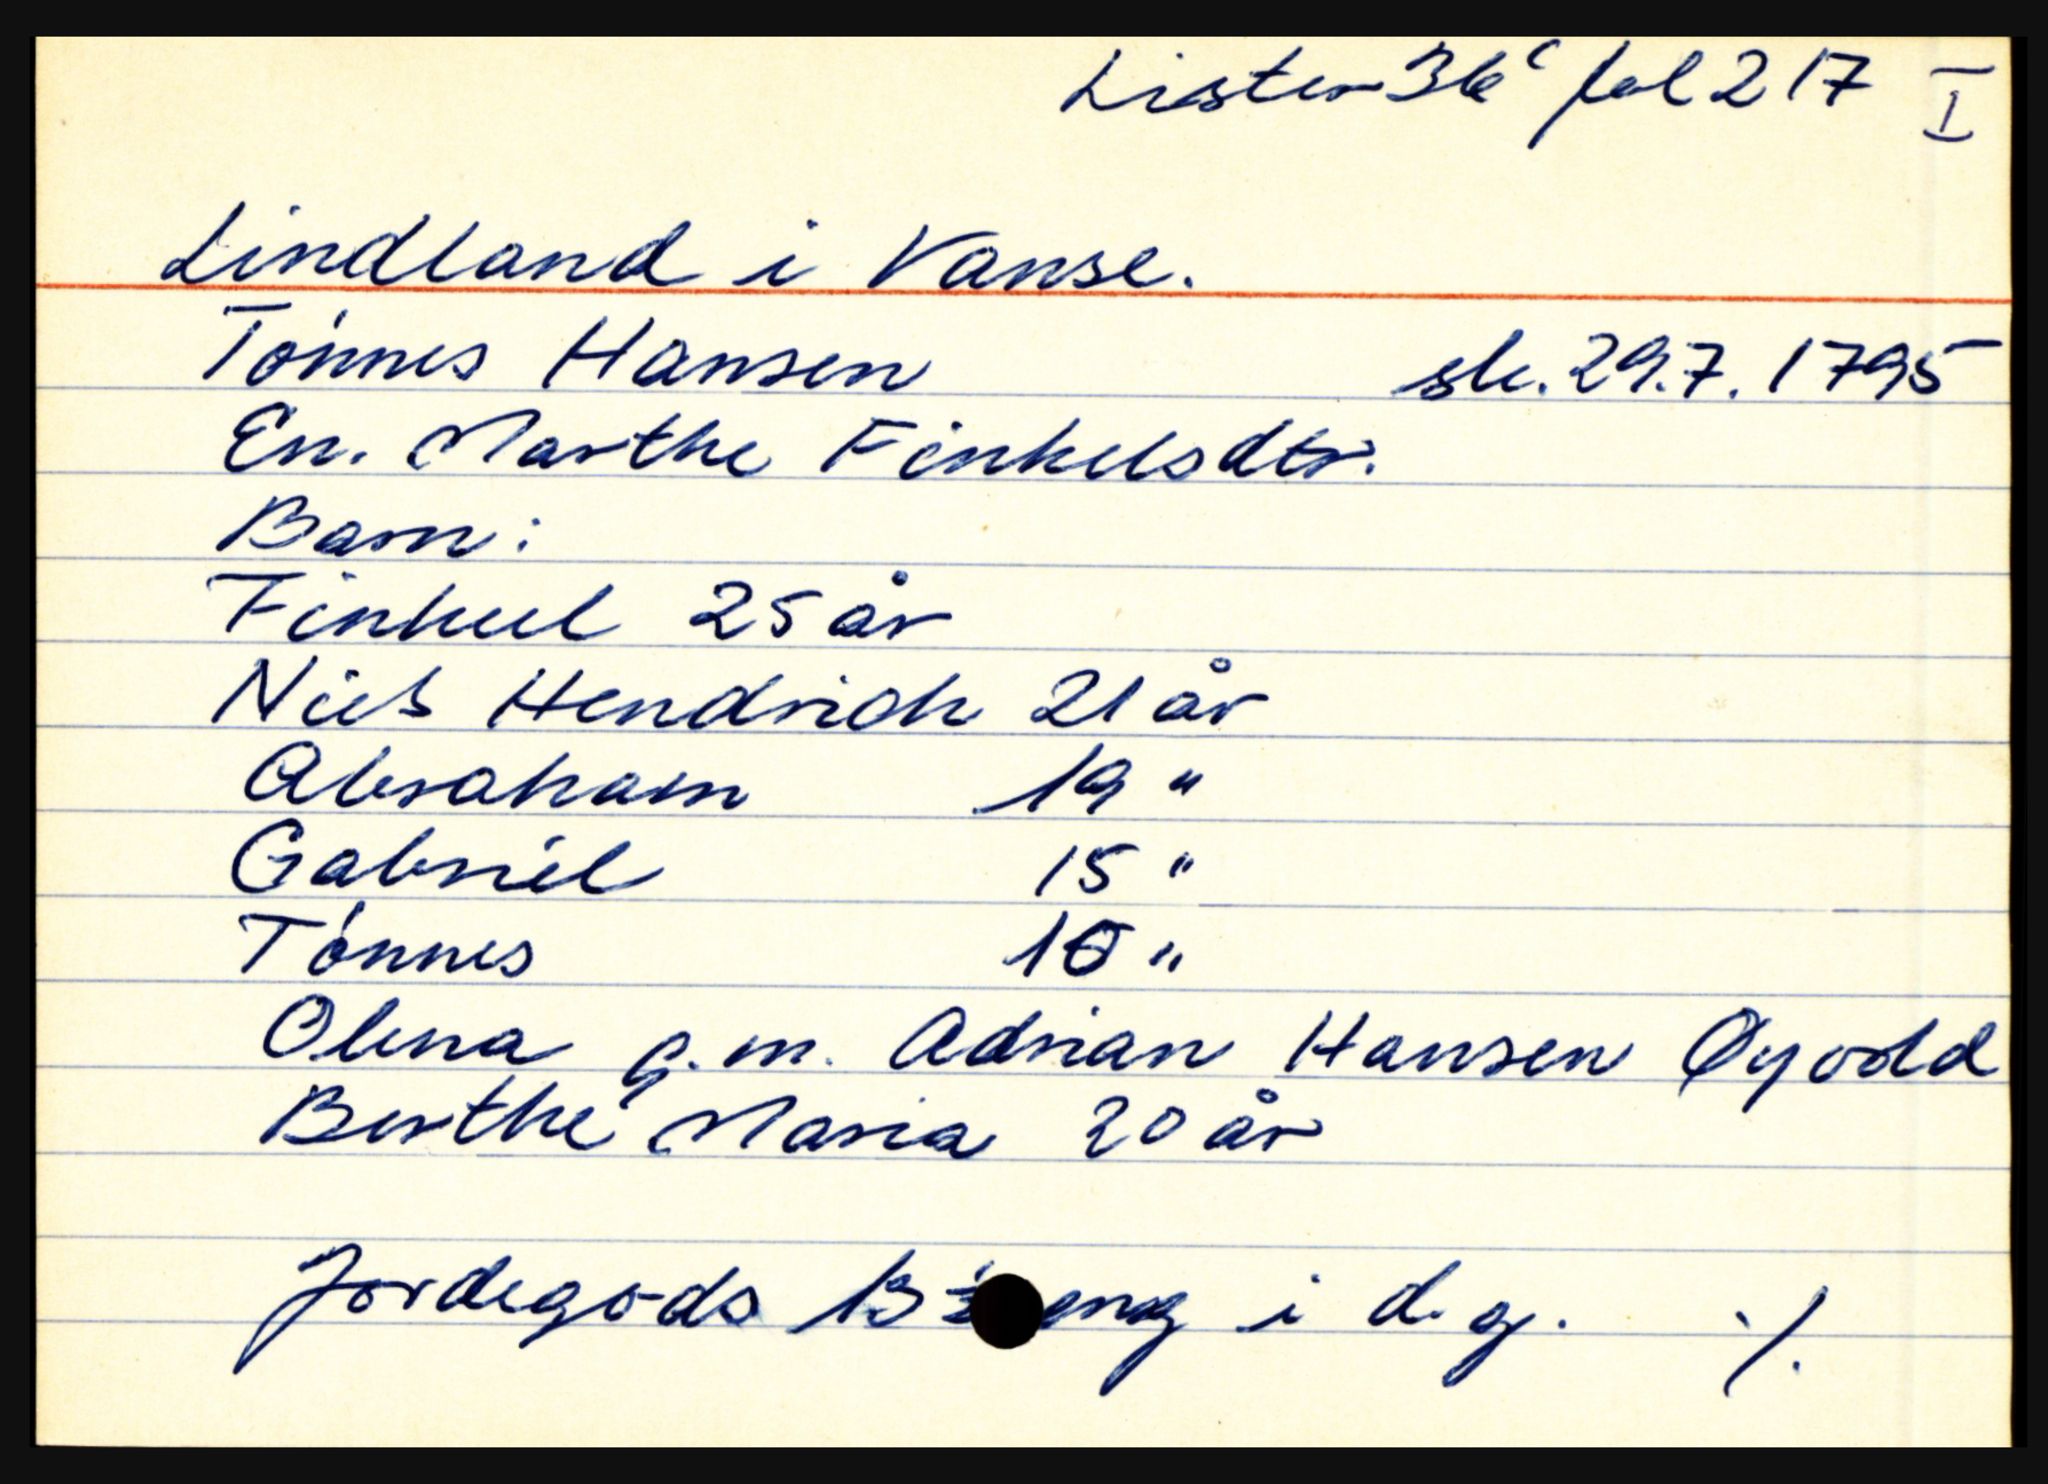 Lister 36c fol 217 I
Lindland i Vanse.
Tønnes Hansen sk. 29.7.1795
En. Marthe Finkelsdtr.
Barn:
Finkeel 25 år
Niels Hendrich 21 år
Abraham 19 "
Gabriel 15 "
Tønnes 10 "
Olena g.m. Adrian Hansen Øyodd
Berthe Maria 20 år
Jordegods 13 eng i d.g. ./.